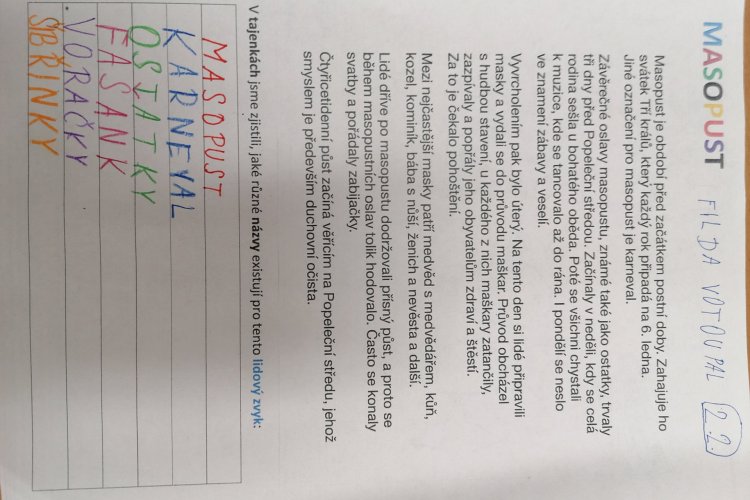 MASOPUST FILDA VOTOUPAL 2.2.
Masopust je období před začátkem postní doby. Zahajuje ho
svátek Tří králů, který každý rok připadá na 6. ledna.
Jiné označení pro masopust je karneval.
Závěrečné oslavy masopustu, známé také jako ostatky, trvaly
tři dny před Popeleční středou. Začínaly v neděli, kdy se celá
rodina sešla u bohatého oběda. Poté se všichni chystali
k muzice, kde se tancovalo až do rána. I pondělí se neslo
ve znamení zábavy a veselí.
Vyvrcholením pak bylo úterý. Na tento den si lidé připravili
masky a vydali se do průvodu maškar. Průvod obcházel
s hudbou stavení, u každého z nich maškary zatančily,
zazpívaly a popřály jeho obyvatelům zdraví a štěstí.
Za to je čekalo pohoštění.
Mezi nejčastější masky patří medvěd s medvědářem, kůň,
kozel, kominík, bába s nůší, ženich a nevěsta a další.
Lidé dříve po masopustu dodržovali přísný půst, a proto se
během masopustních oslav tolik hodovalo. Často se konaly
svatby a pořádaly zabijačky.
Čtyřicetidenní půst začíná věřícím na Popeleční středu, jehož
smyslem je především duchovní očista.
V tajenkách jsme zjistili, jaké různé názvy existují pro tento lidový zvyk:
MASOPUST
KARNEVAL
OSTATKY
FAŠANK
VORAČKY
ŠIBŘINKY